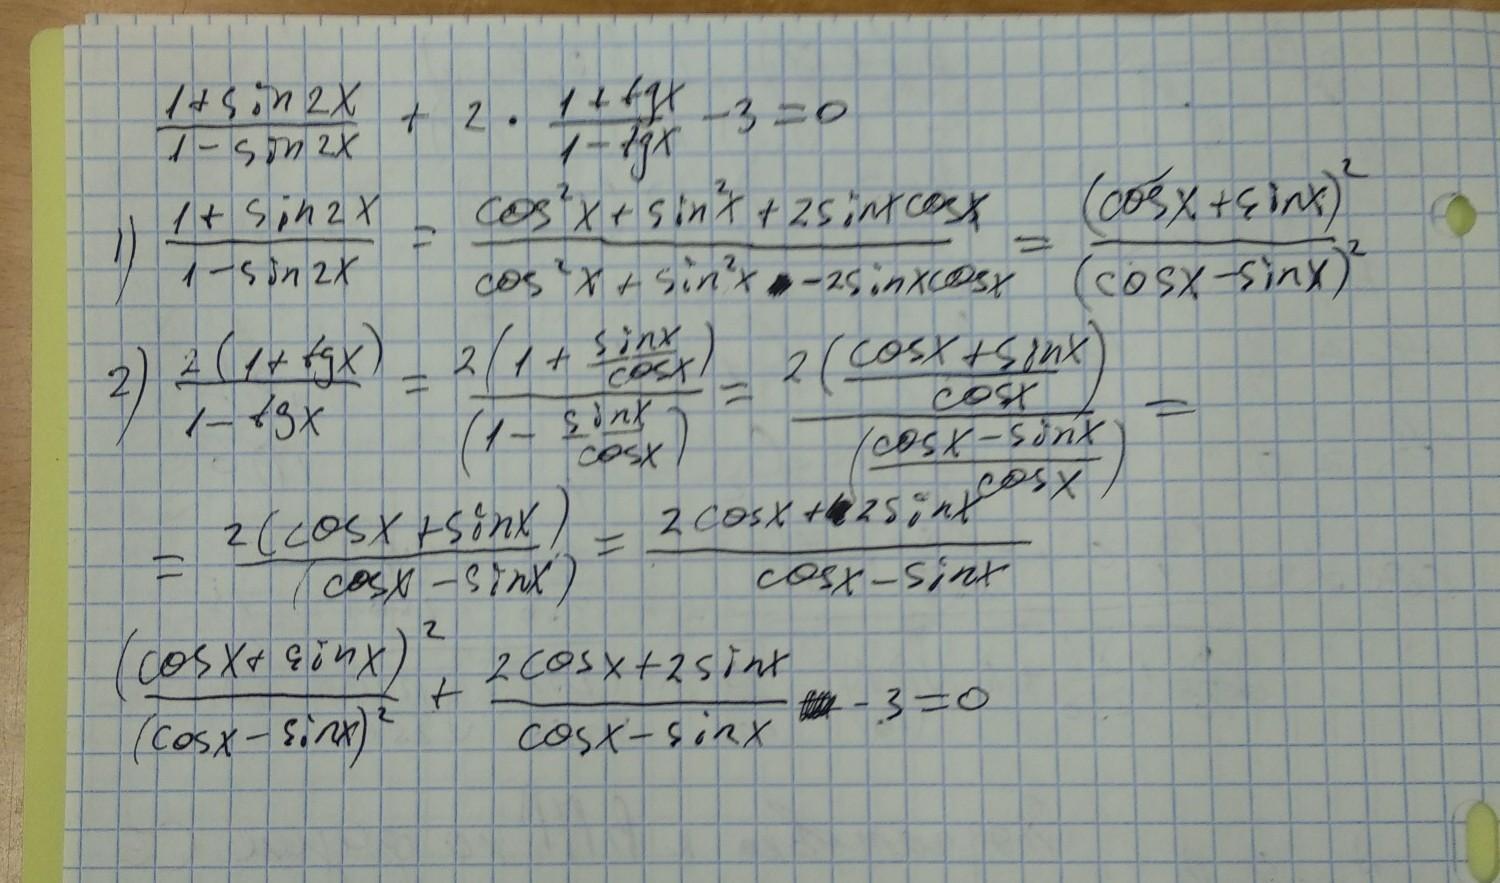 (1+sin2x)/(1-sin2x) + 2 · (1+tgx)/(1-tgx) - 3 = 0
1) (1+sin2x)/(1-sin2x) = (cos²x+sin²x+2sinxcosx)/(cos²x+sin²x-2sinxcosx) = (cosx+sinx)²/(cosx-sinx)²
2) 2(1+tgx)/(1-tgx) = 2(1+sinx/cosx)/(1-sinx/cosx) = 2((cosx+sinx)/cosx)/((cosx-sinx)/cosx) =
= 2(cosx+sinx)/(cosx-sinx) = (2cosx+2sinx)/(cosx-sinx)
(cosx+sinx)²/(cosx-sinx)² + (2cosx+2sinx)/(cosx-sinx) - 3 = 0